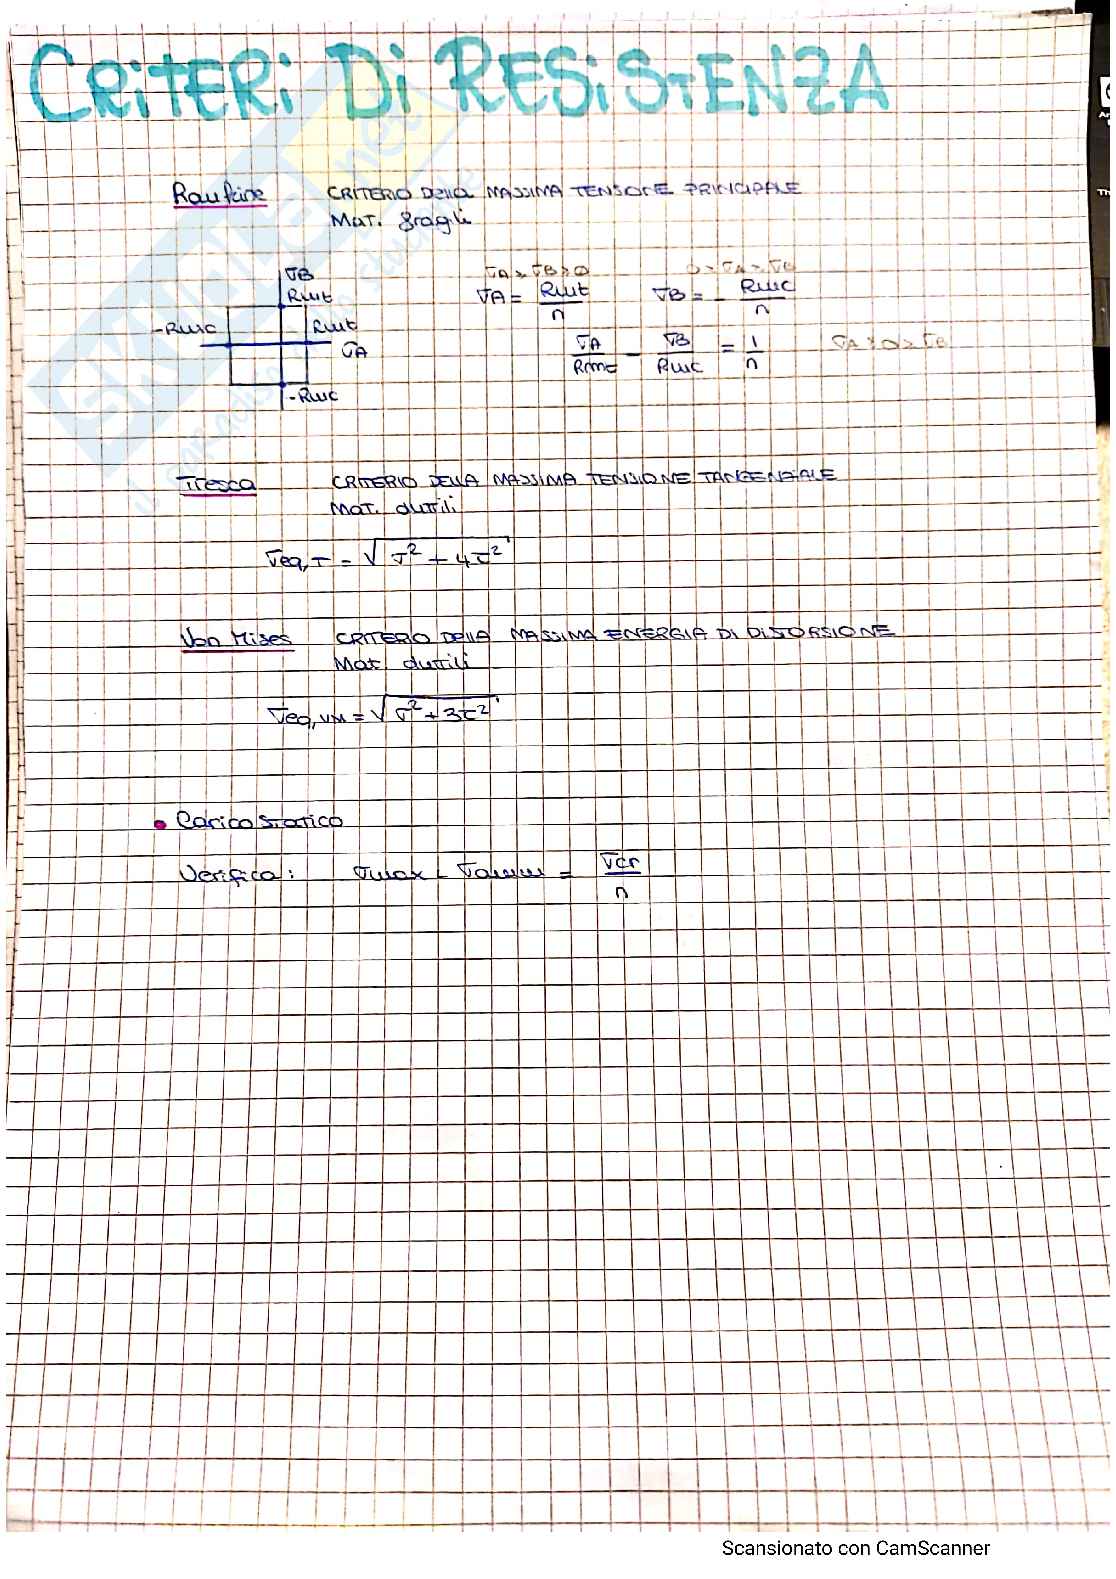 CRITERI DI RESISTENZA
Rankine CRITERIO DELLA MASSIMA TENSIONE PRINCIPALE
Mat. fragili
σB
Rmt
-Rmc
Rmt
σA
-Rmc
σA > σB > 0
σA = Rmt/n
0 > σA > σB
σB = - Rmc/n
σA/Rmt - σB/Rmc = 1/n σA > 0 > σB
Tresca CRITERIO DELLA MASSIMA TENSIONE TANGENZIALE
Mat. duttili
σeq,T = √σ² + 4τ²
Von Mises CRITERIO DELLA MASSIMA ENERGIA DI DISTORSIONE
Mat. duttili
σeq,VM = √σ² + 3τ²
• Carico statico
Verifica: σmax ≤ σamm = σcr/n
Scansionato con CamScanner